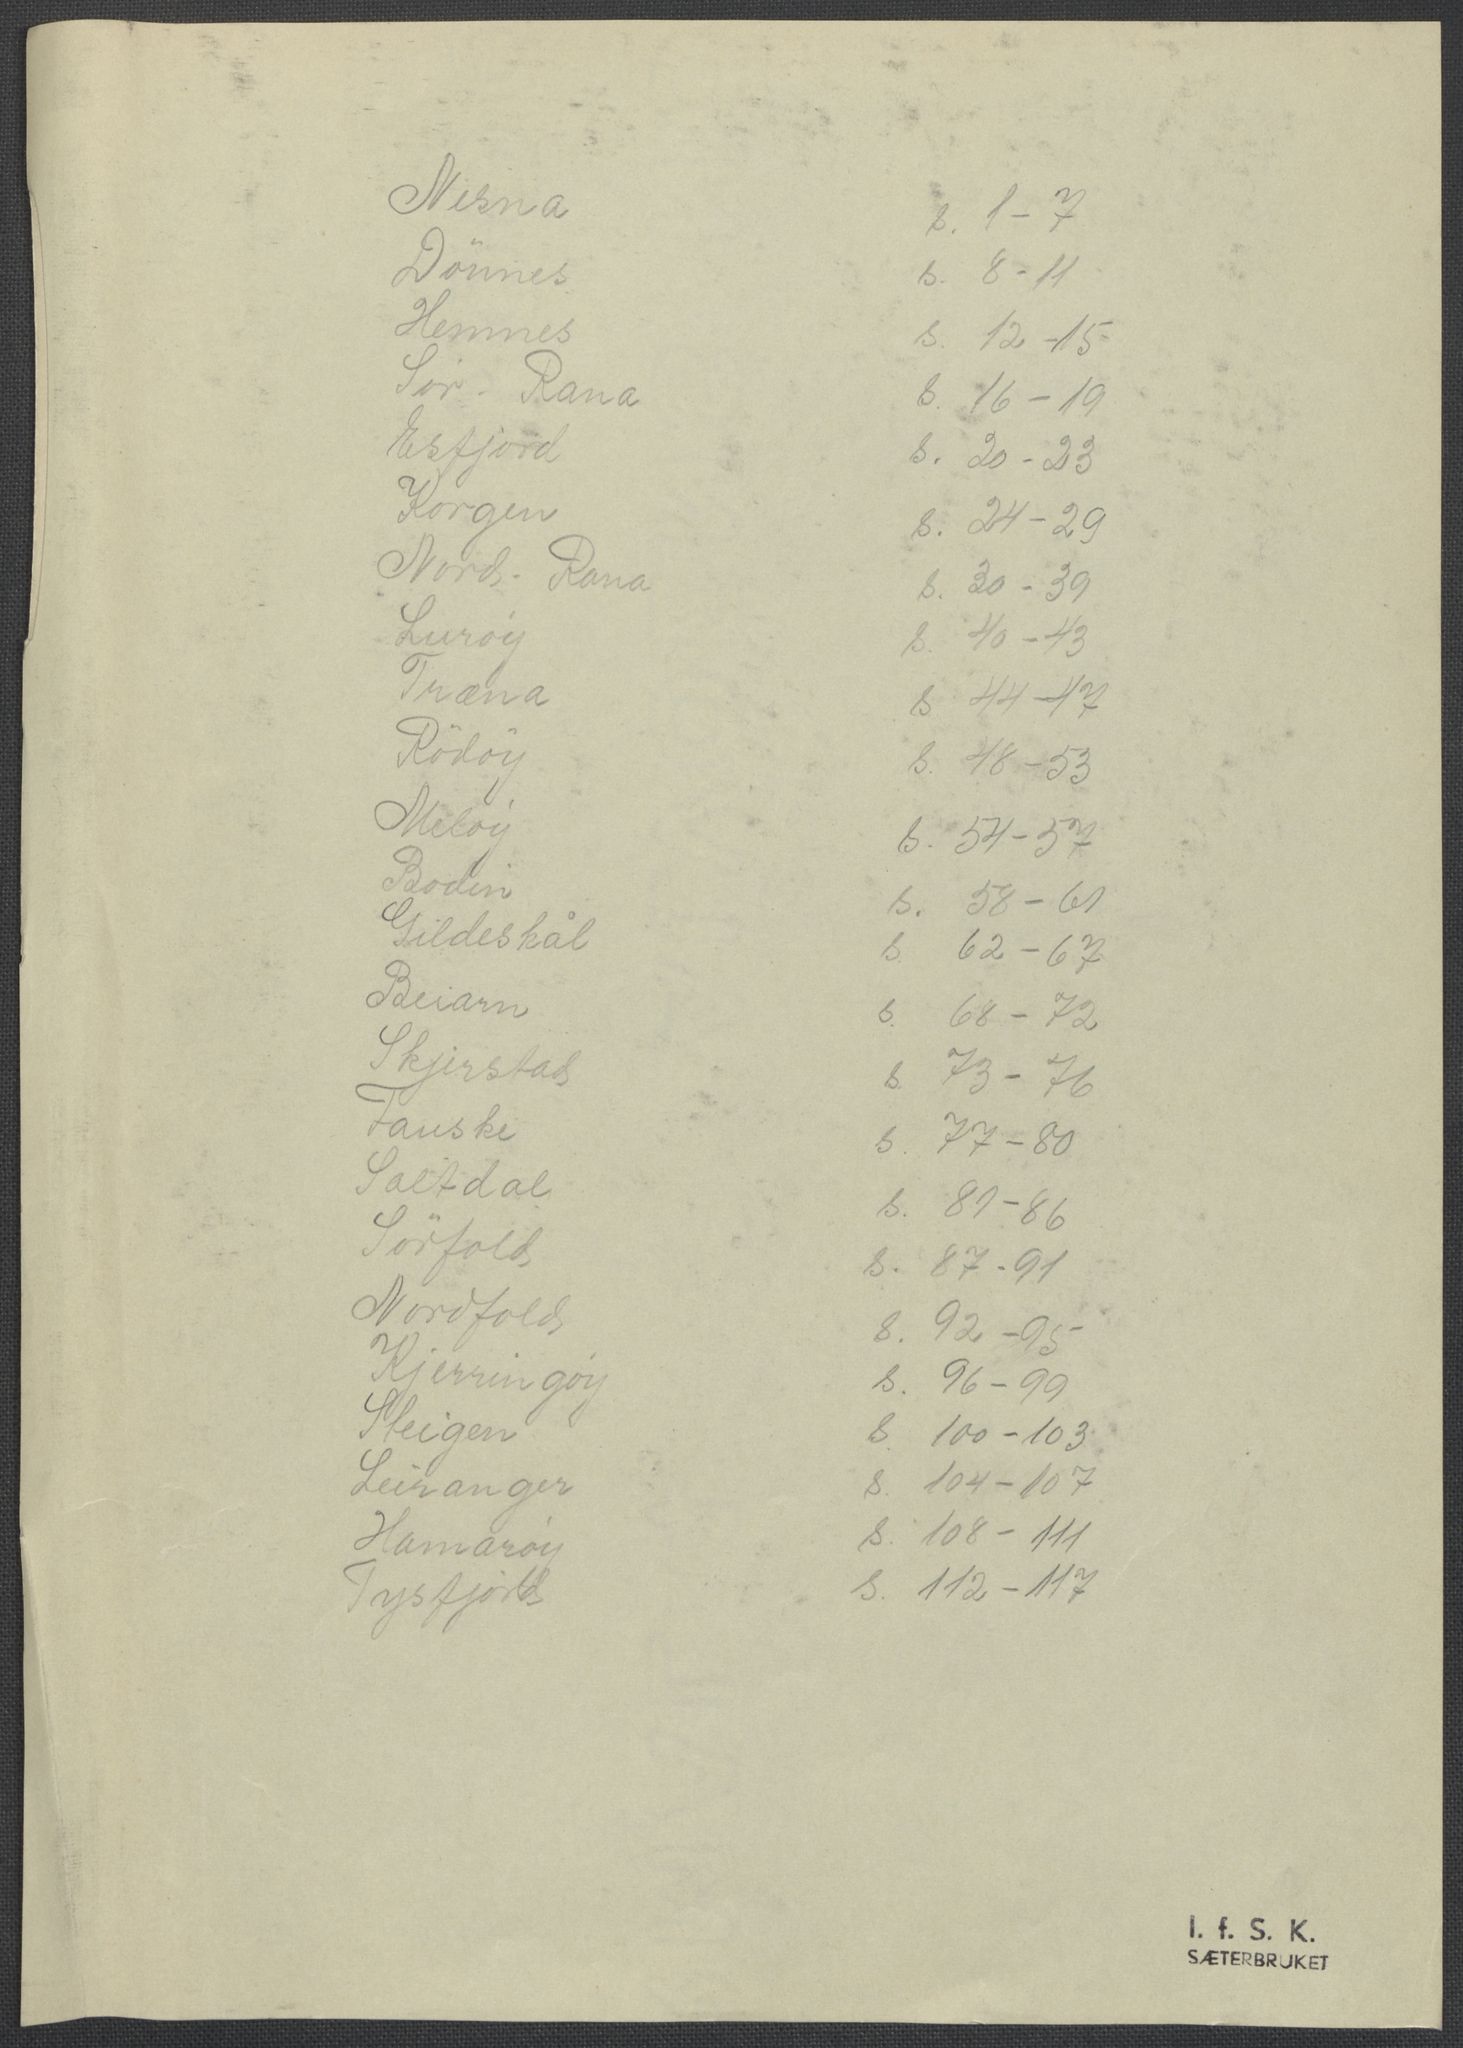 Nesna s. 1-7
Dönnes s. 8-11
Hemnes s. 12-15
Sör-Rana s. 16-19
Esfjord s. 20-23
Korgen s. 24-29
Nord-Rana s. 30-39
Luröy s. 40-43
Træna s 44-47
Rödöy s. 48-53
Melöy s. 54-57
Bodin s. 58-61
Gildeskål s. 62-67
Beiarn s. 68-72
Skjerstad s. 73-76
Fauske s. 77-80
Saltdal s. 81-86
Sörfold s. 87-91
Nordfold s. 92-95
Kjerringöy s. 96-99
Steigen s. 100-103
Leiranger s. 104-107
Hamaröy s. 108-111
Tysfjord s. 112-117
I. f. S. K.
SÆTERBRUKET